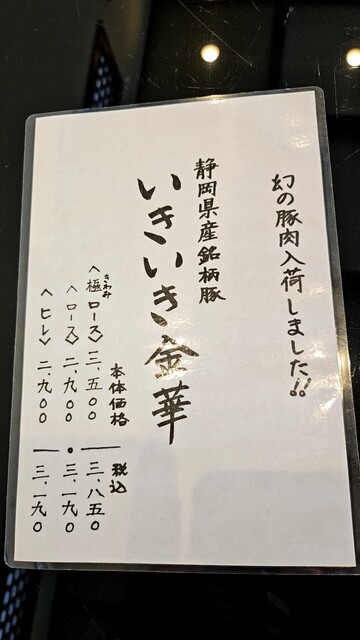 幻の豚肉入荷しました!!
静岡県産銘柄豚
いきいき金華
本体価格 税込
きわみ
〈極ロース〉三、五〇〇 三、八五〇
〈ロース〉二、九〇〇 • 三、一九〇
〈ヒレ〉二、九〇〇 三、一九〇